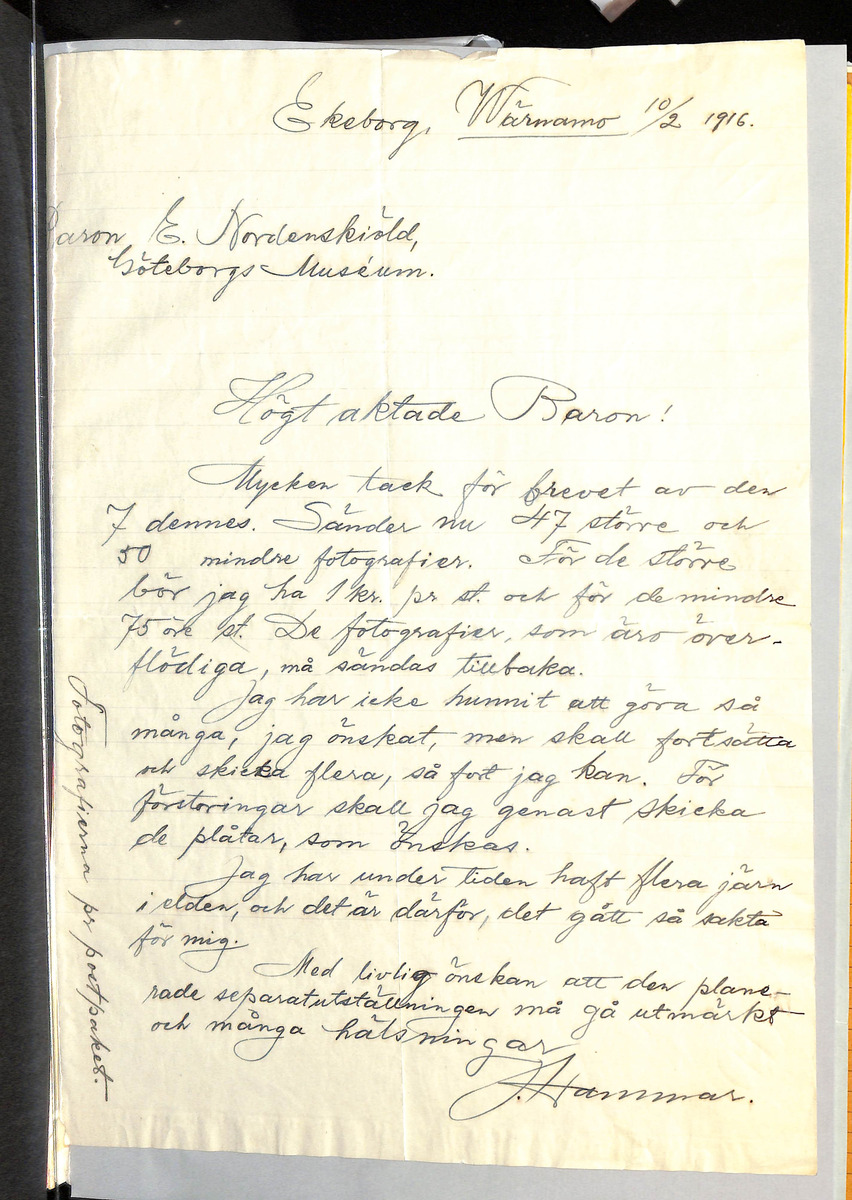 Ekeborg, Wärnamo 10/2 1916.
Baron E. Nordenskiöld,
Göteborgs Muséum.
Högt aktade Baron!
Mycken tack för brevet av den
7 dennes. Sänder nu 47 större och
50 mindre fotografier. För de större
bör jag ha 1 kr. pr st. och för de mindre
75 öre st. De fotografier, som äro över-
flödiga, må sändas tillbaka.
Jag har icke hunnit att göra så
många, jag önskat, men skall fortsätta
och skicka flera, så fort jag kan. För
förstoringar skall jag genast skicka
de plåtar, som önskas.
Jag har under tiden haft flera järn
i elden, och det är därför, det gått så sakta
för mig.
Med livlig önskan att den plane-
rade separatutställningen må gå utmärkt
och många hälsningar
J. Hammar.
Fotografierna pr postpaket.